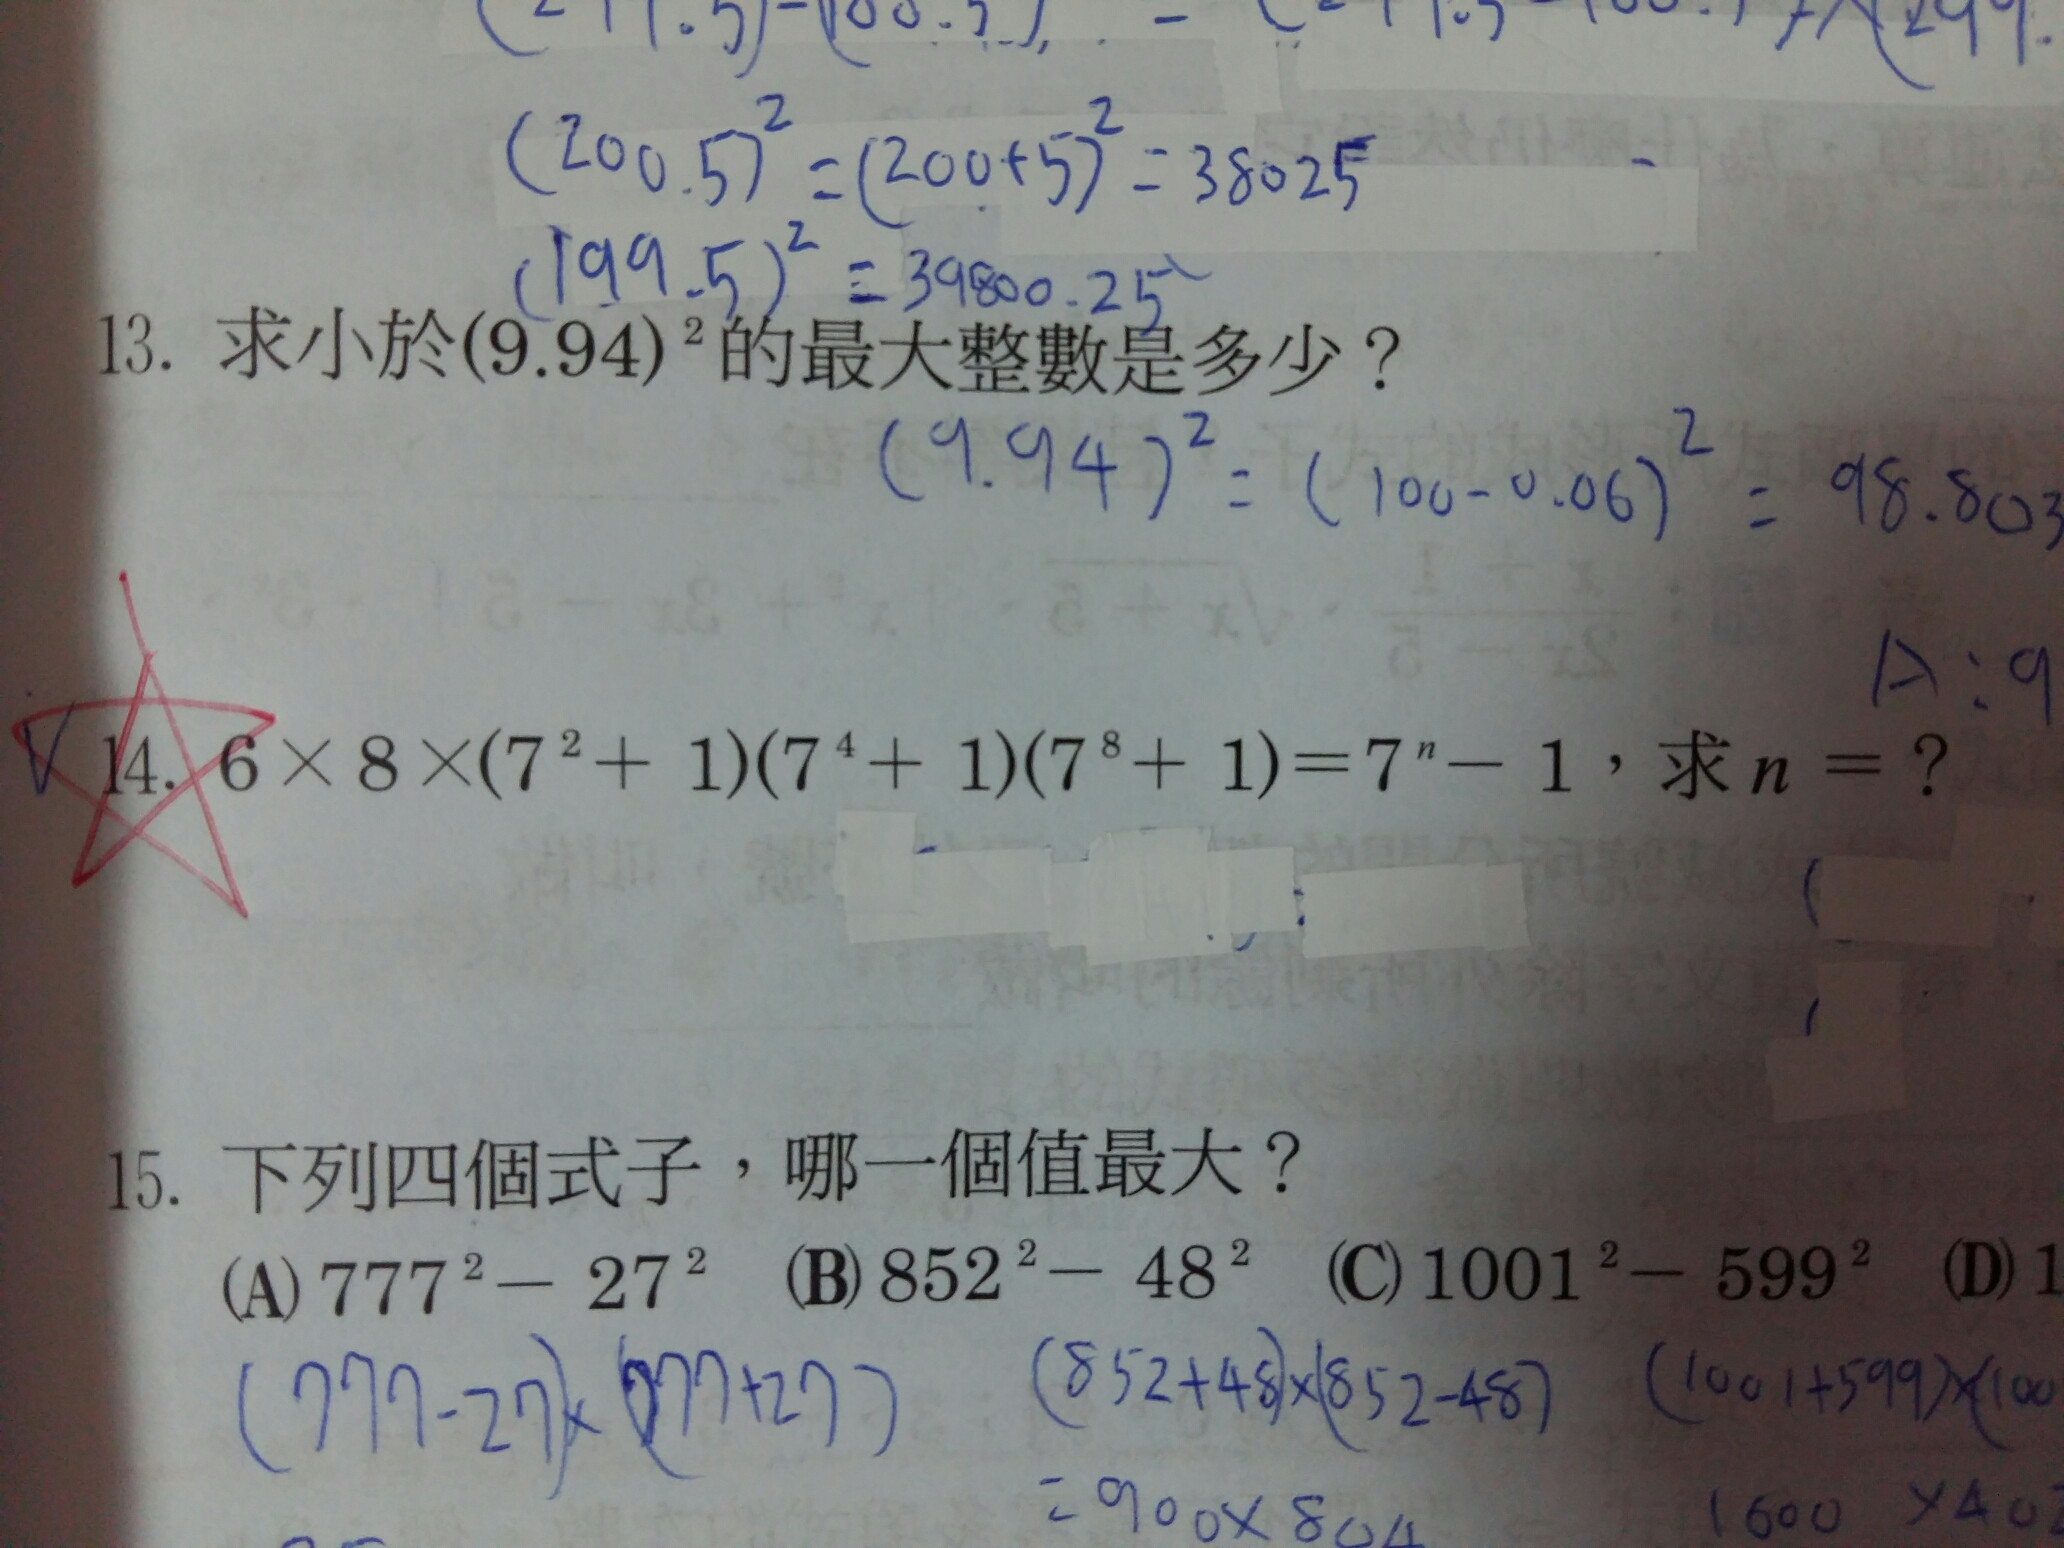 (200.5)² = (200+5)² = 38025
(199.5)² = 39800.25
13. 求小於(9.94)²的最大整數是多少？
(9.94)² = (100-0.06)² = 98.803
A:9
14. 6×8×(7²+1)(7⁴+1)(7⁸+1)=7ⁿ-1，求n=？
15. 下列四個式子，哪一個值最大？
(A)777²-27² (B)852²-48² (C)1001²-599² (D)1
(777-27)×(777+27) (852+48)×(852-48) (1001+599)×(100
=900×804 1600×402